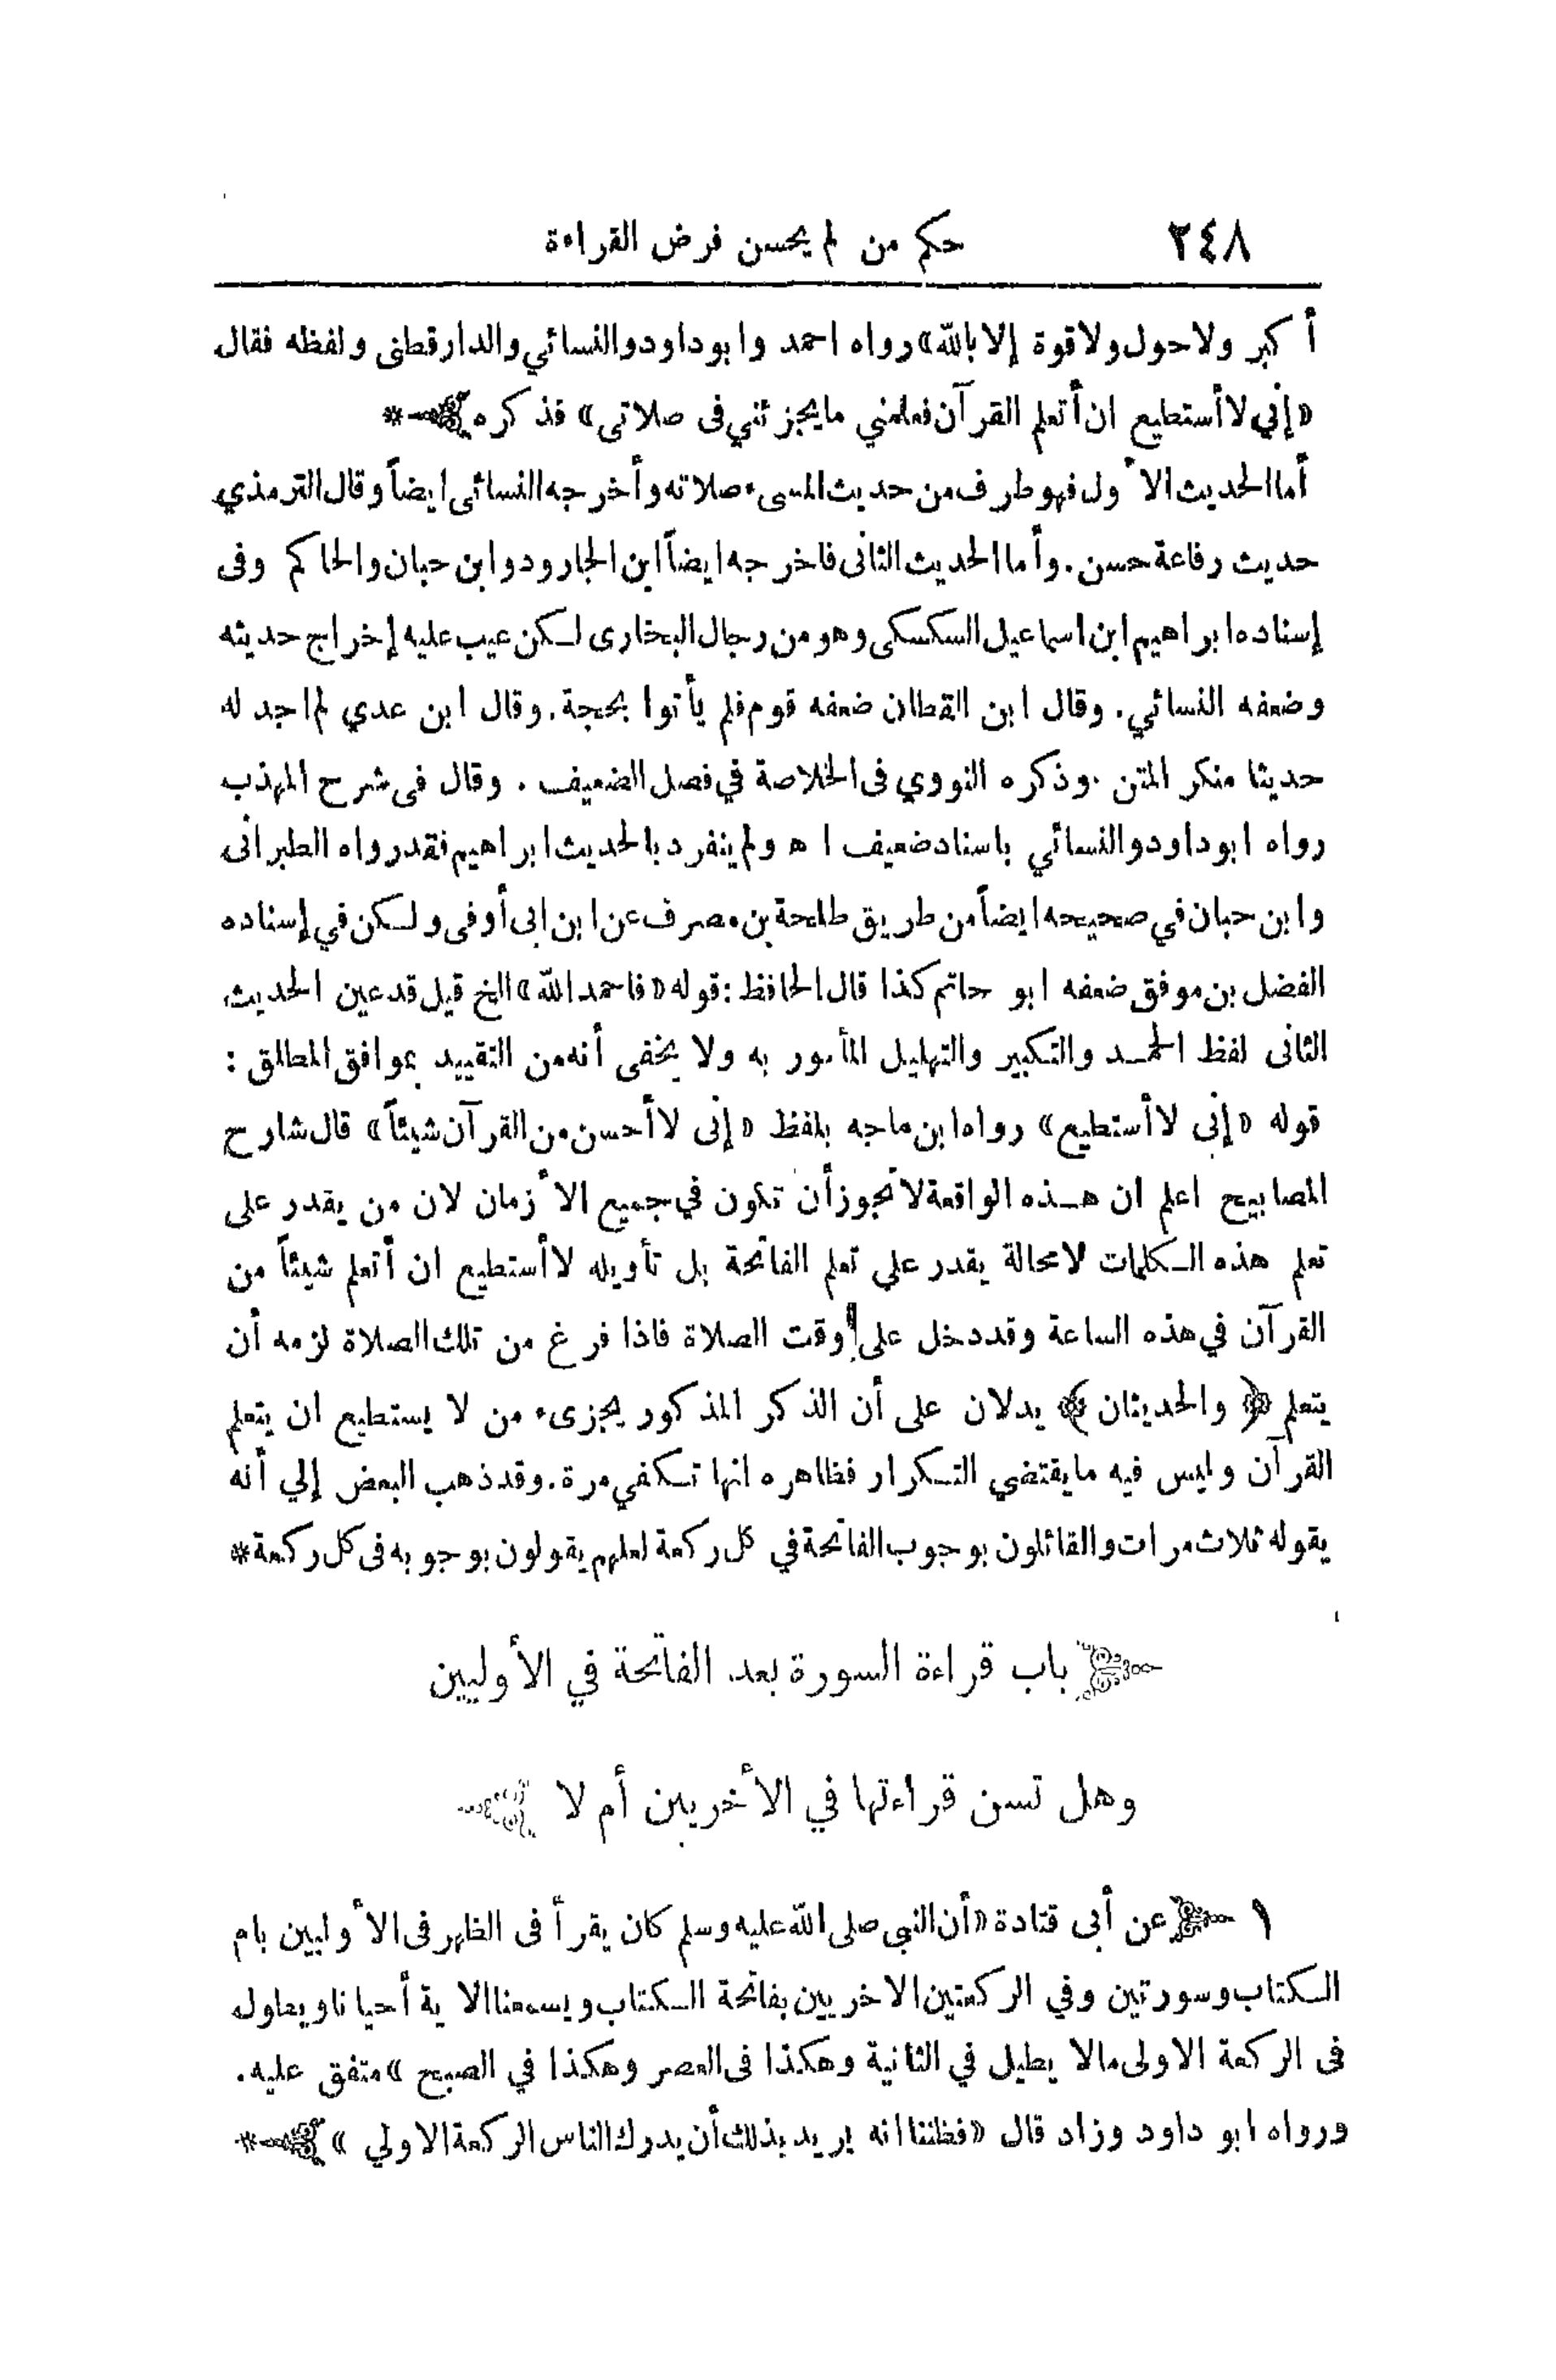 ٢٤٨ حكم من لم يحسن فرض القراءة
أكبر ولا حول ولا قوة إلا بالله» رواه احمد وابو داود والنسائي والدارقطنى ولفظه فقال
«إني لا أستطيع ان أتعلم القرآن فعلمني ما يجزئني فى صلاتى» فذكره *
أما الحديث الأول فهو طرف من حديث المسىء صلاته وأخرجه النسائى ايضاً وقال الترمذي
حديث رفاعة حسن. وأما الحديث الثانى فاخرجه ايضاً ابن الجارود وابن حبان والحاكم وفى
إسناده ابراهيم ابن اسماعيل السكسكى وهو من رجال البخارى لكن عيب عليه إخراج حديثه
وضعفه النسائي. وقال ابن القطان ضعفه قوم فلم يأتوا بحجة. وقال ابن عدي لم اجد له
حديثا منكر المتن. وذكره النووي فى الخلاصة في فصل الضعيف. وقال فى شرح المهذب
رواه ابو داود والنسائي باسناد ضعيف ا ه ولم ينفرد بالحديث ابراهيم فقد رواه الطبرانى
وابن حبان في صحيحه ايضاً من طريق طلحة بن مصرف عن ابن ابى أوفى ولكن في إسناده
الفضل بن موفق ضعفه ابو حاتم كذا قال الحافظ: قوله «فاحمد الله» الخ قيل قد عين الحديث
الثانى لفظ الحمد والتكبير والتهليل المأمور به ولا يخفى أنه من التقييد بموافق المطلق:
قوله «إنى لا أستطيع» رواه ابن ماجه بلفظ «إنى لا أحسن من القرآن شيئاً» قال شارح
المصابيح اعلم ان هذه الواقعة لا تجوز أن تكون في جميع الأزمان لان من يقدر على
تعلم هذه الكلمات لا محالة يقدر علي تعلم الفاتحة بل تأويله لا أستطيع ان أتعلم شيئاً من
القرآن في هذه الساعة وقد دخل على وقت الصلاة فاذا فرغ من تلك الصلاة لزمه أن
يتعلم ﴿والحديثان﴾ يدلان على أن الذكر المذكور يجزىء من لا يستطيع ان يتعلم
القرآن وليس فيه ما يقتضي التكرار فظاهره انها تكفي مرة. وقد ذهب البعض إلي أنه
يقوله ثلاث مرات والقائلون بوجوب الفاتحة في كل ركعة لعلهم يقولون بوجوبه فى كل ركعة *
باب قراءة السورة بعد الفاتحة في الأوليين
وهل تسن قراءتها في الأخريين أم لا
١ عن أبى قتادة «أن النبى صلى الله عليه وسلم كان يقرأ فى الظهر فى الأوليين بام
الكتاب وسورتين وفي الركعتين الاخريين بفاتحة الكتاب ويسمعنا الاية أحيانا ويطول
فى الركعة الاولى مالا يطيل في الثانية وهكذا فى العصر وهكذا في الصبح» متفق عليه.
ورواه ابو داود وزاد قال «فظننا انه يريد بذلك أن يدرك الناس الركعة الاولي» *